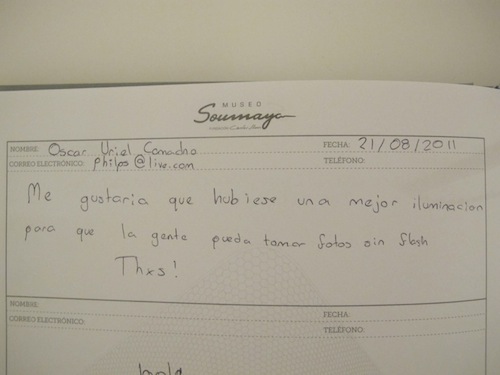 MUSEO
Soumaya
NOMBRE: Oscar Uriel Camacho FECHA: 21/08/2011
CORREO ELECTRÓNICO: philos@live.com TELÉFONO:
Me gustaria que hubiese una mejor iluminacion
para que la gente pueda tomar fotos sin flash
Thxs!
NOMBRE: FECHA:
CORREO ELECTRÓNICO: TELÉFONO: